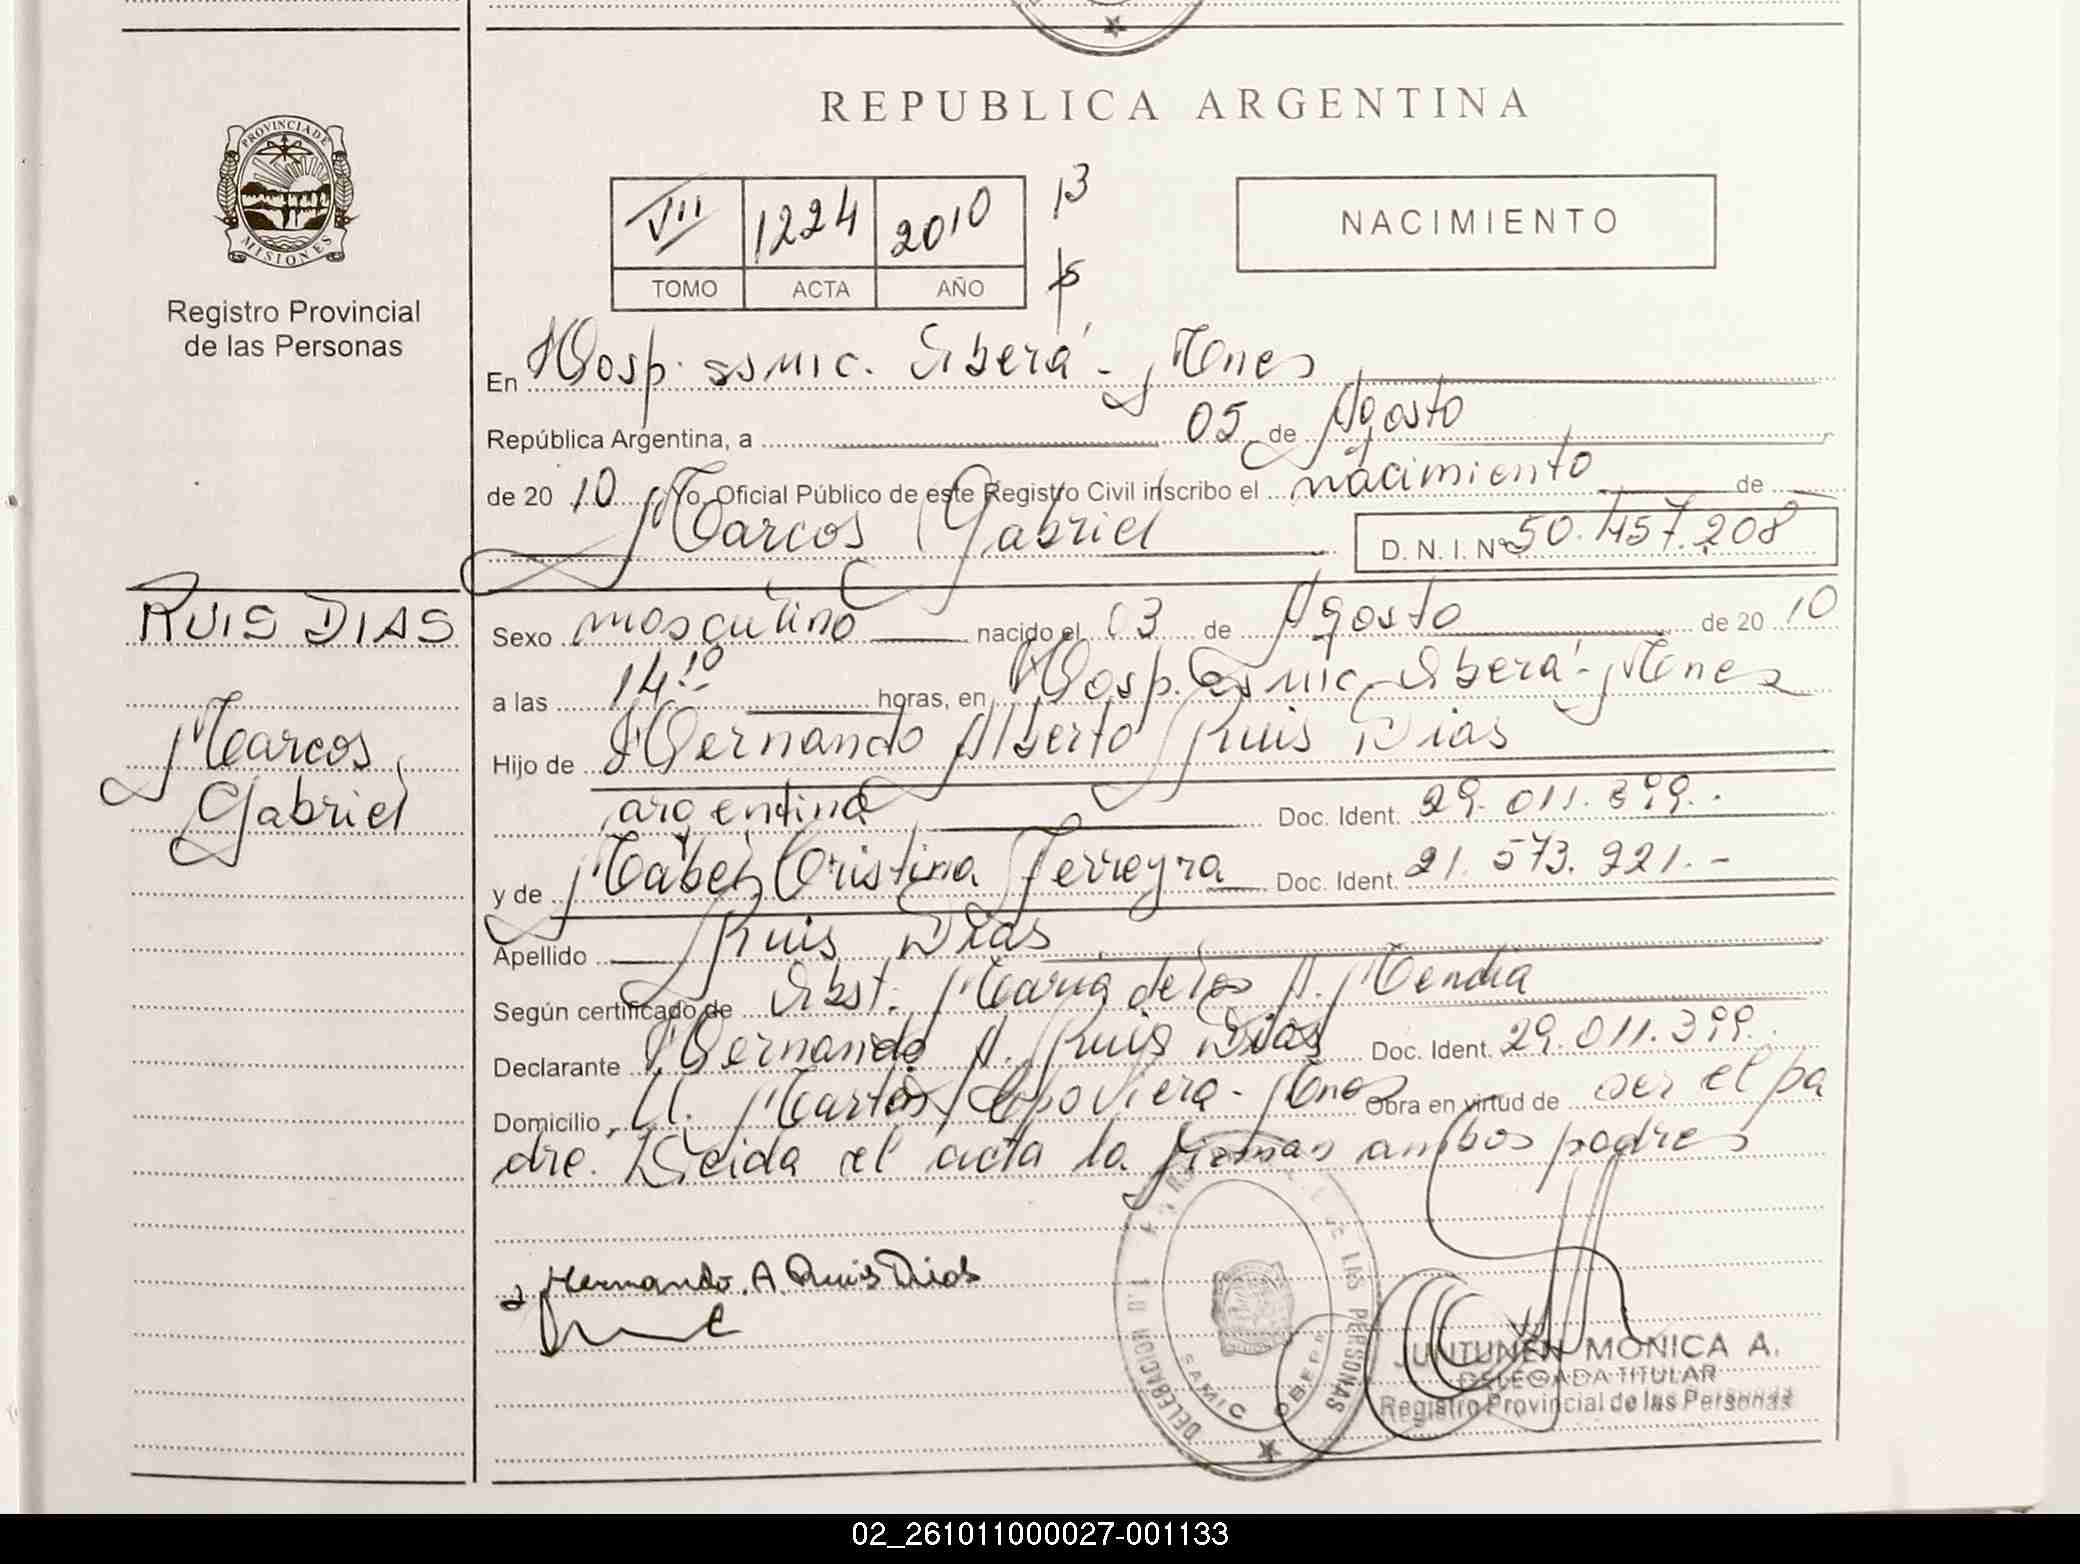 REPUBLICA ARGENTINA
PROVINCIA DE
MISIONES
Registro Provincial
de las Personas
VII 1224 2010 13
TOMO ACTA AÑO
NACIMIENTO
En Hosp. ssmic. Oberá - Mnes
República Argentina, a 05 de Agosto
de 20 10 Yo, Oficial Público de este Registro Civil inscribo el nacimiento de
Marcos Gabriel D. N. I. Nº 50.457.208
RUIS DIAS
Marcos
Gabriel
Sexo masculino nacido el 03 de Agosto de 20 10
a las 14:10 horas, en Hosp. ssmic - Oberá - Mnes
Hijo de Hernando Alberto Ruis Dias
argentina Doc. Ident. 29.011.399.
y de Mabel Cristina Ferreyra Doc. Ident. 21.573.221.-
Apellido Ruis Dias
Según certificado de Obst. Maria de los A. Mendia
Declarante Hernando A. Ruis Dias Doc. Ident. 29.011.399.
Domicilio Mnes Obra en virtud de ser el pa
dre. Leida el acta la firman ambos padres
Hernando. A. Ruis Dias
DELEGACION DE LAS PERSONAS
SAMIC OBERA
JUNTUNEN MONICA A.
DELEGADA TITULAR
Registro Provincial de las Personas
02_261011000027-001133